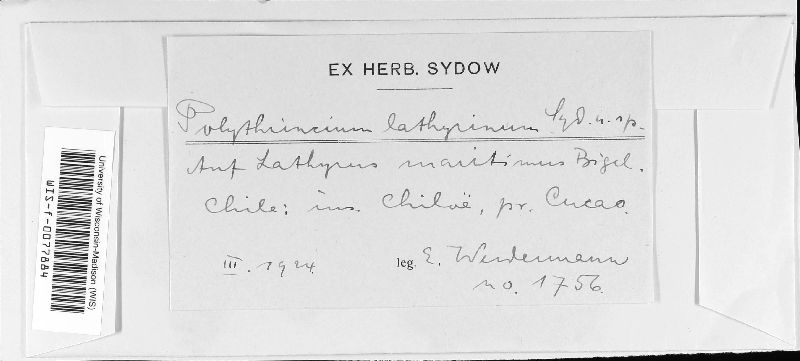 EX HERB. SYDOW
Polythrincium lathyrinum Syd. n. sp.
Auf Lathyrus maritimus Bigel.
Chile: ins. Chiloë, pr. Cucao.
III. 1924 leg. E. Werdermann
no. 1756.
University of Wisconsin-Madison (WIS)
WIS-f-0077884